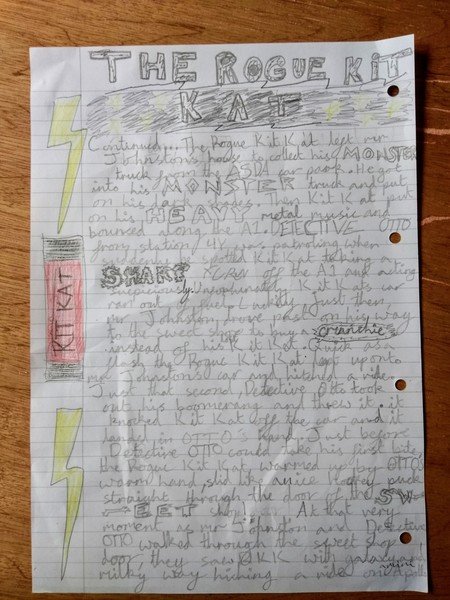 THE ROGUE KIT
KAT
Continued... The Rogue Kit Kat left mr
Johnston's house to collect his MONSTER
truck from the ASDA car park. He got
into his MONSTER truck and put
on his dark shades. Then Kit Kat put
on his HEAVY metal music and
bounced along the A1. DETECTIVE OTTO
from station 4Y was patroling when
suddenly he spotted Kit Kat taking a
SHARP turn off the A1 and acting
suspiciously. Unfortunately, Kit Kats car
ran out of fuel. Luckily, Just then,
mr Johnston drove past on his way
to the sweet shop to buy a crunchie
instead of his Kit Kat. Quick as a
flash the Rogue Kit Kat got uponto
mr Johnston's car and hitched a ride.
Just that second, Detective Otto took
out his boomerang and threw it. it
knocked Kit Kat off the car and it
landed in OTTO's hand. Just before
Detective OTTO could take his first bite,
the Rogue Kit Kat, warmed up by OTTO'S
warm hand, slid like an ice hockey puck
straight through the door of the SW-
EET shop. At that very
moment, as mr Johnston and Detective
OTTO walked through the sweet shop
door, they saw RKK with galaxy and
milky way hiching a ride on a mini
KIT KAT